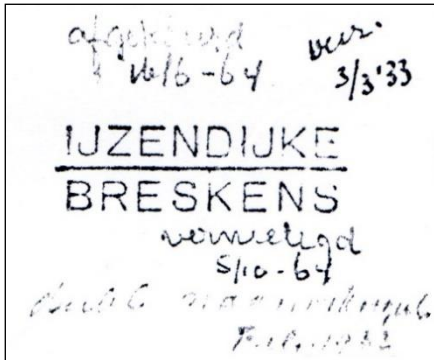 afgekeurd
16/6-64
verz.
3/3'33
IJZENDIJKE
BRESKENS
vernietigd
5/10-64
1933